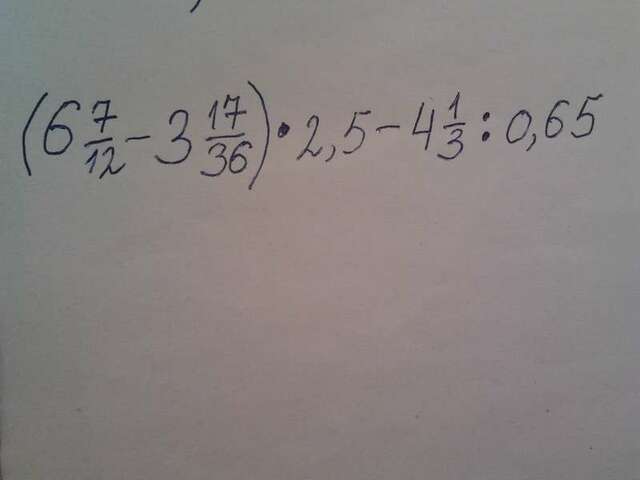 (6 7/12 - 3 17/36) • 2,5 - 4 1/3 : 0,65